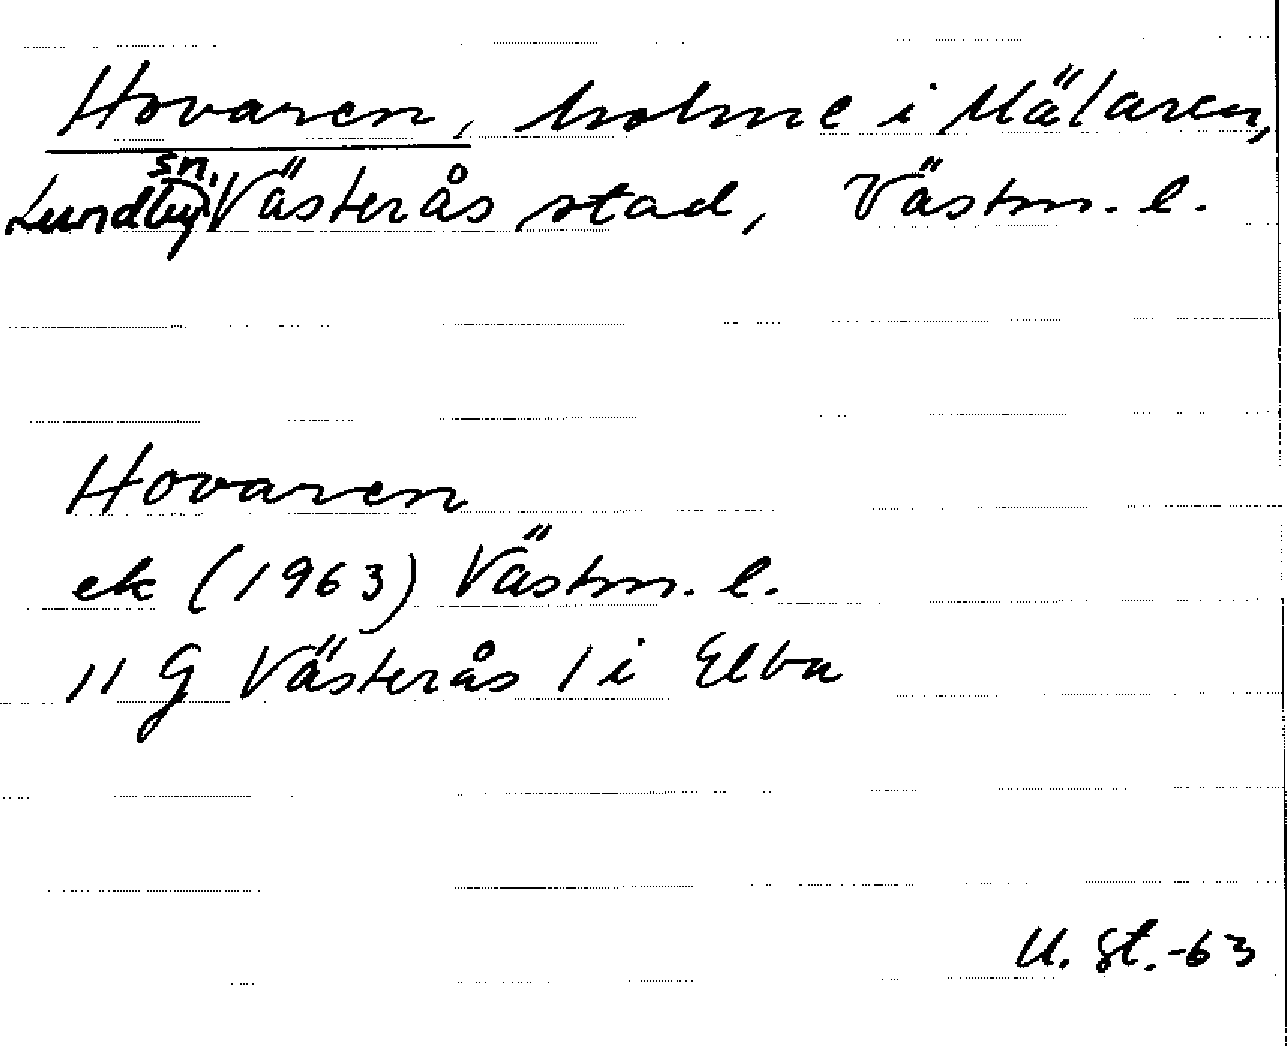 Hovaren, holme i Mälaren,
Lundby sn. Västerås stad, Västm. l.
Hovaren
ek (1963) Västm. l.
11 G Västerås 1 i Elba
U. St. -63